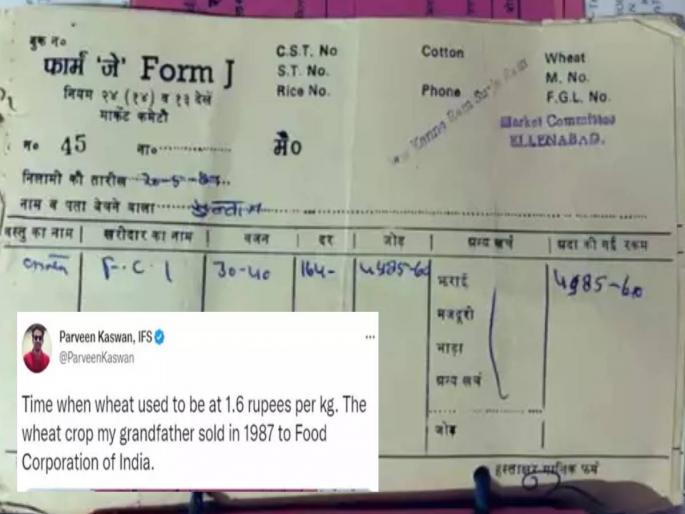 बुक न०
फार्म 'जे' Form J
नियम २४ (१४) व १३ देखें
मार्केट कमेटी
C.S.T. No
S.T. No.
Rice No.
Cotton
Phone
Wheat
M. No.
F.G.L. No.
Market Committee
ELLENABAD.
न० 45 ता०............ मै०
निलामी की तारीख 20-5-87
नाम व पता बेचने वाला
वस्तु का नाम | खरीदार का नाम | वजन | दर | जोड़ | अन्य खर्च | अदा की गई रकम
F.C.I 30-40 164- 4985-60 4985-60
भराई
मजदूरी
भाड़ा
अन्य खर्च
जोड़
हस्ताक्षर मालिक फर्म
Parveen Kaswan, IFS
@ParveenKaswan
Time when wheat used to be at 1.6 rupees per kg. The
wheat crop my grandfather sold in 1987 to Food
Corporation of India.